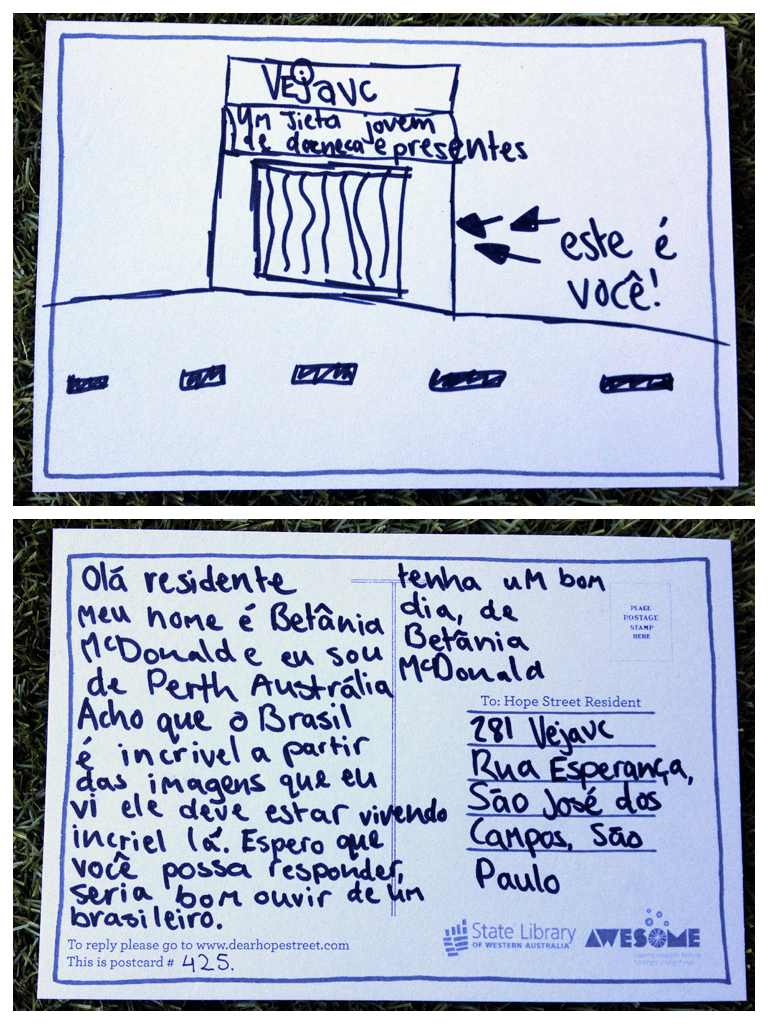 Vejavc
Um Jieta jovem
de doeneca e presentes
este é
você!
Olá residente
meu nome é Betânia
McDonald e eu sou
de Perth Austrália
Acho que o Brasil
é incrivel a partir
das imagens que eu
vi ele deve estar vivendo
incriel lá. Espero que
você possa responder,
seria bom ouvir de um
brasileiro.
To reply please go to www.dearhopestreet.com
This is postcard # 425.
tenha um bom
dia, de
Betânia
McDonald
PLACE
POSTAGE
STAMP
HERE
To: Hope Street Resident
281 Vejavc
Rua Esperança,
São José dos
Campos, São
Paulo
State Library
OF WESTERN AUSTRALIA
AWESOME